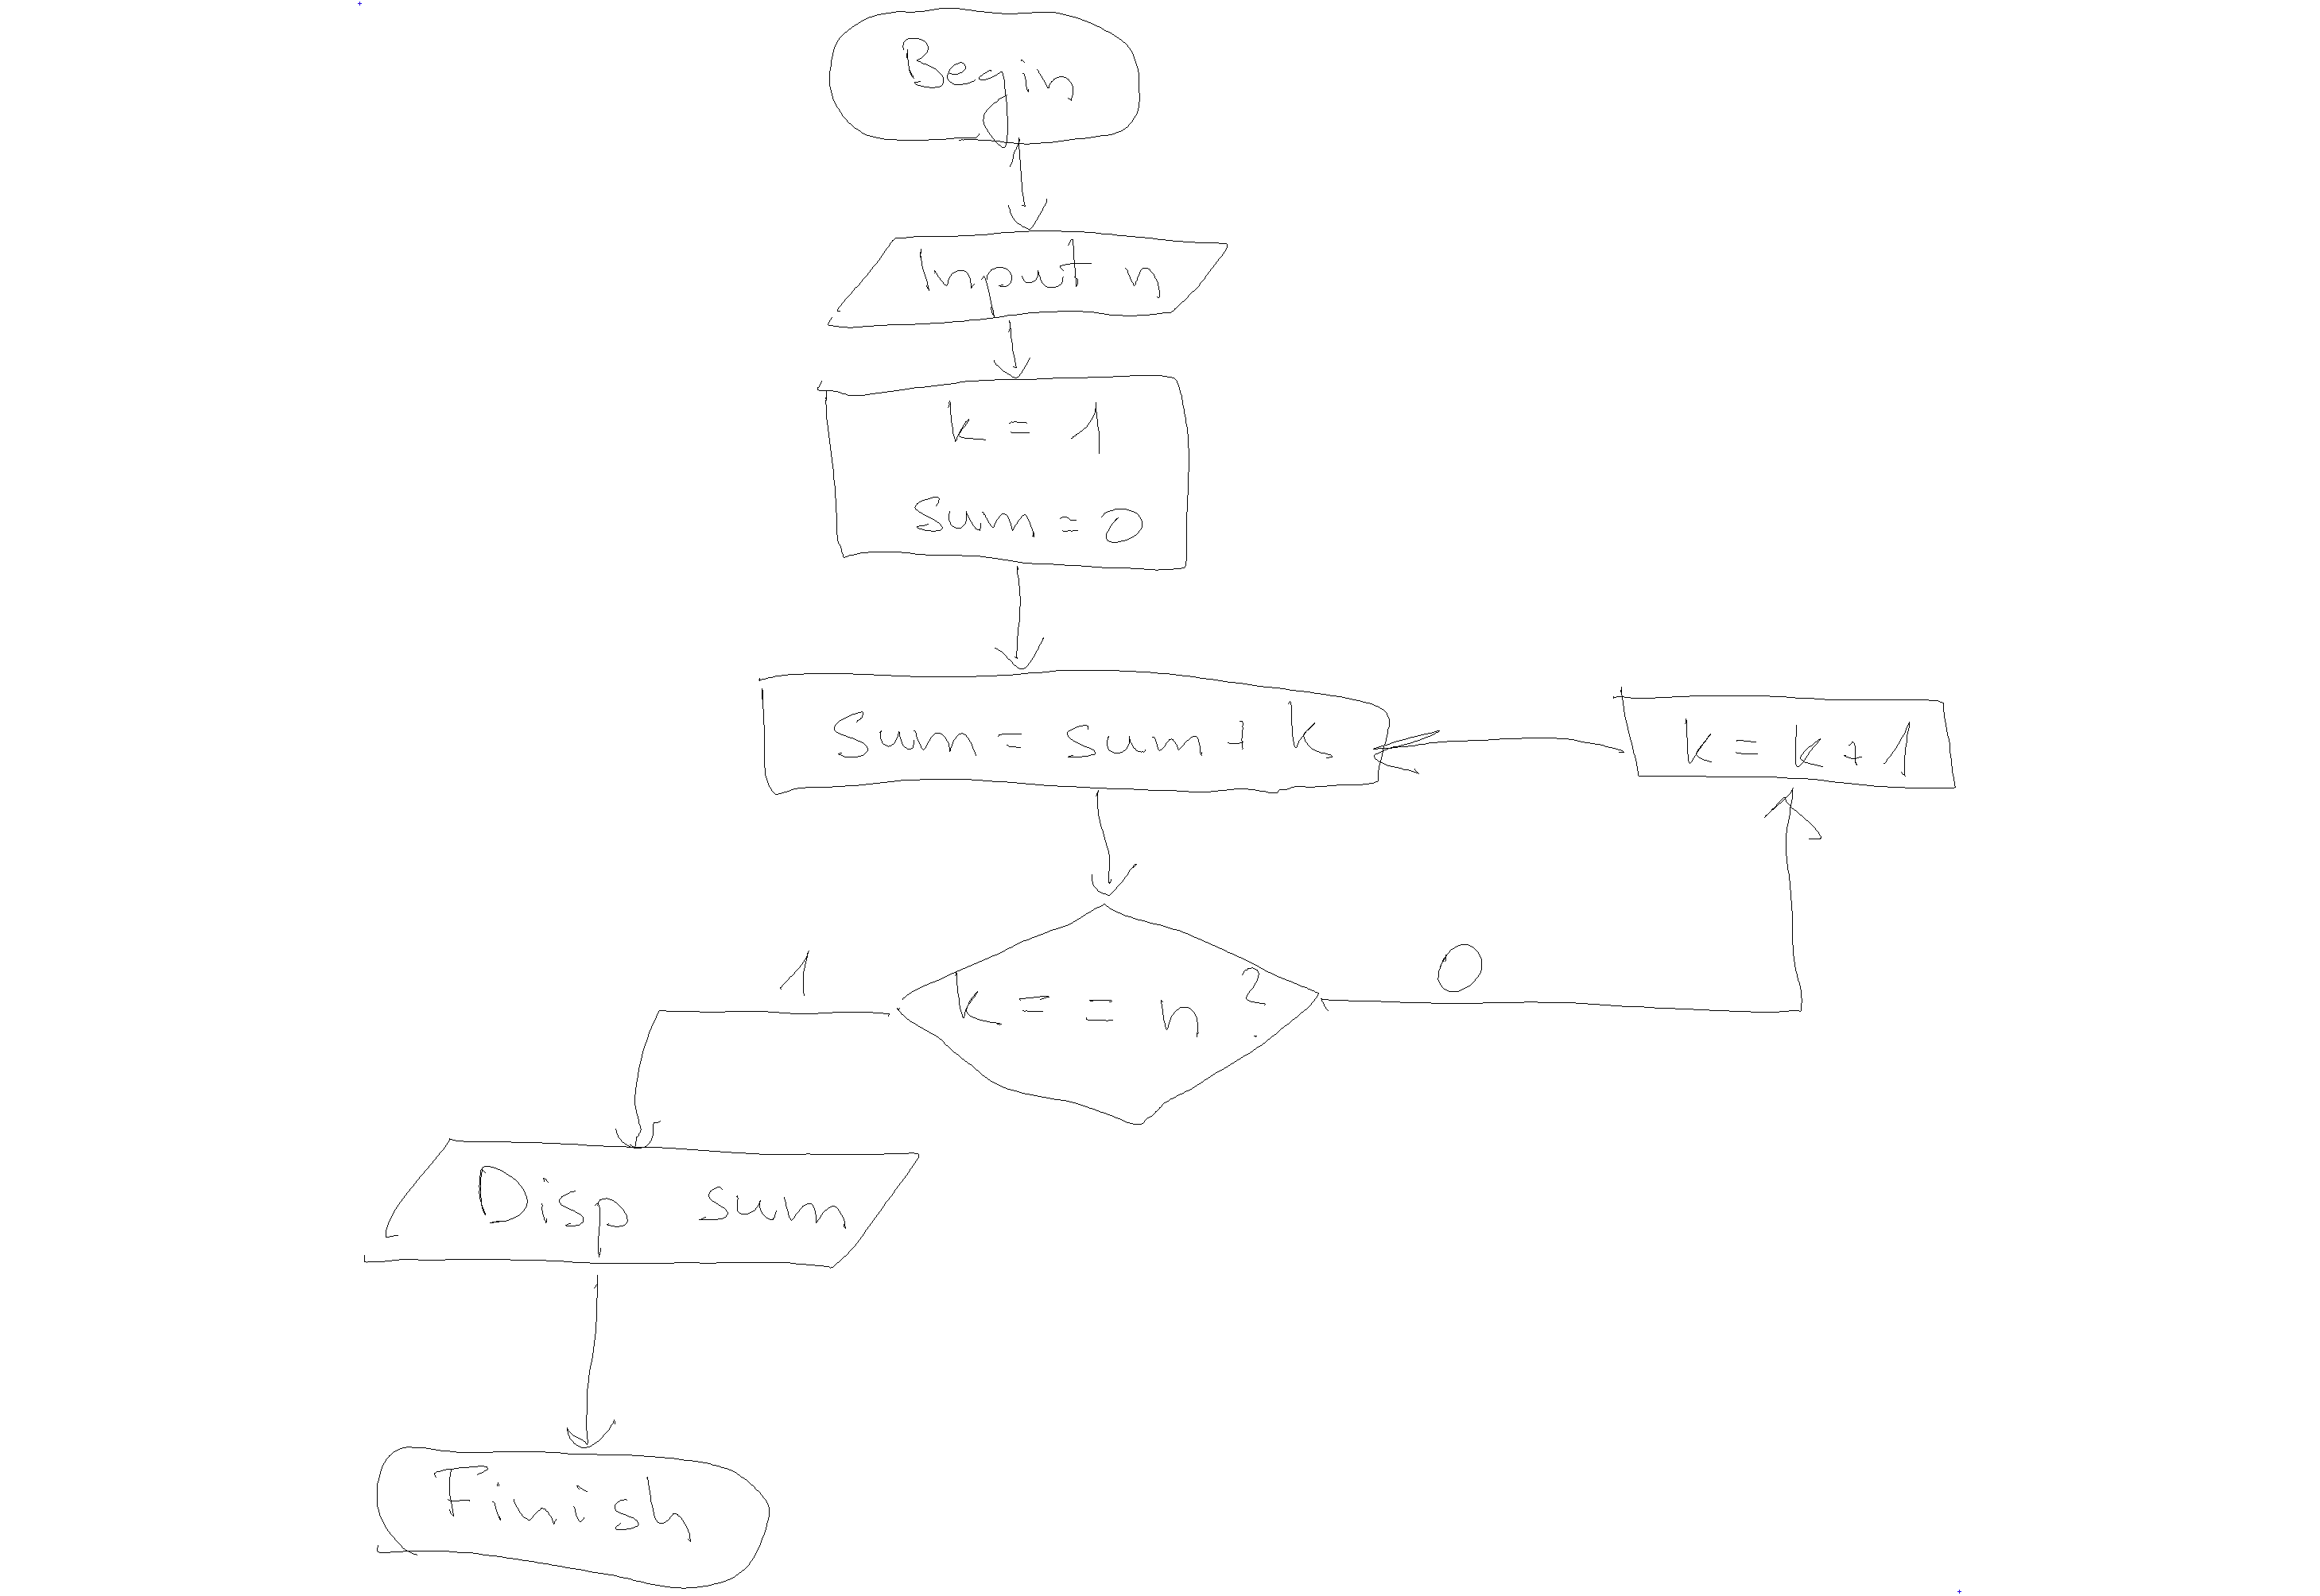 Begin
Input n
k = 1
sum = 0
sum = sum + k
k = k + 1
1
k == n ?
0
Disp sum
Finish